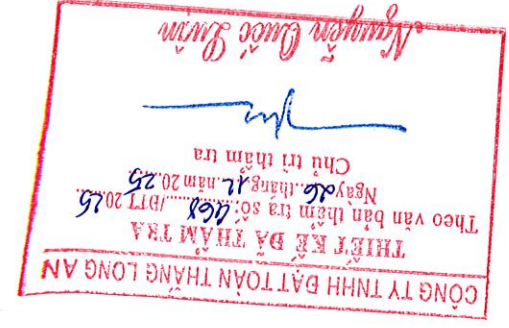 CÔNG TY TNHH ĐẠT TOÀN THẮNG LONG AN
THIẾT KẾ ĐÃ THẨM TRA
Theo văn bản thẩm tra số: 468 /ĐTT 2025
Ngày 26 tháng 12 năm 2025
Chủ trì thẩm tra
Nguyễn Quốc Luận